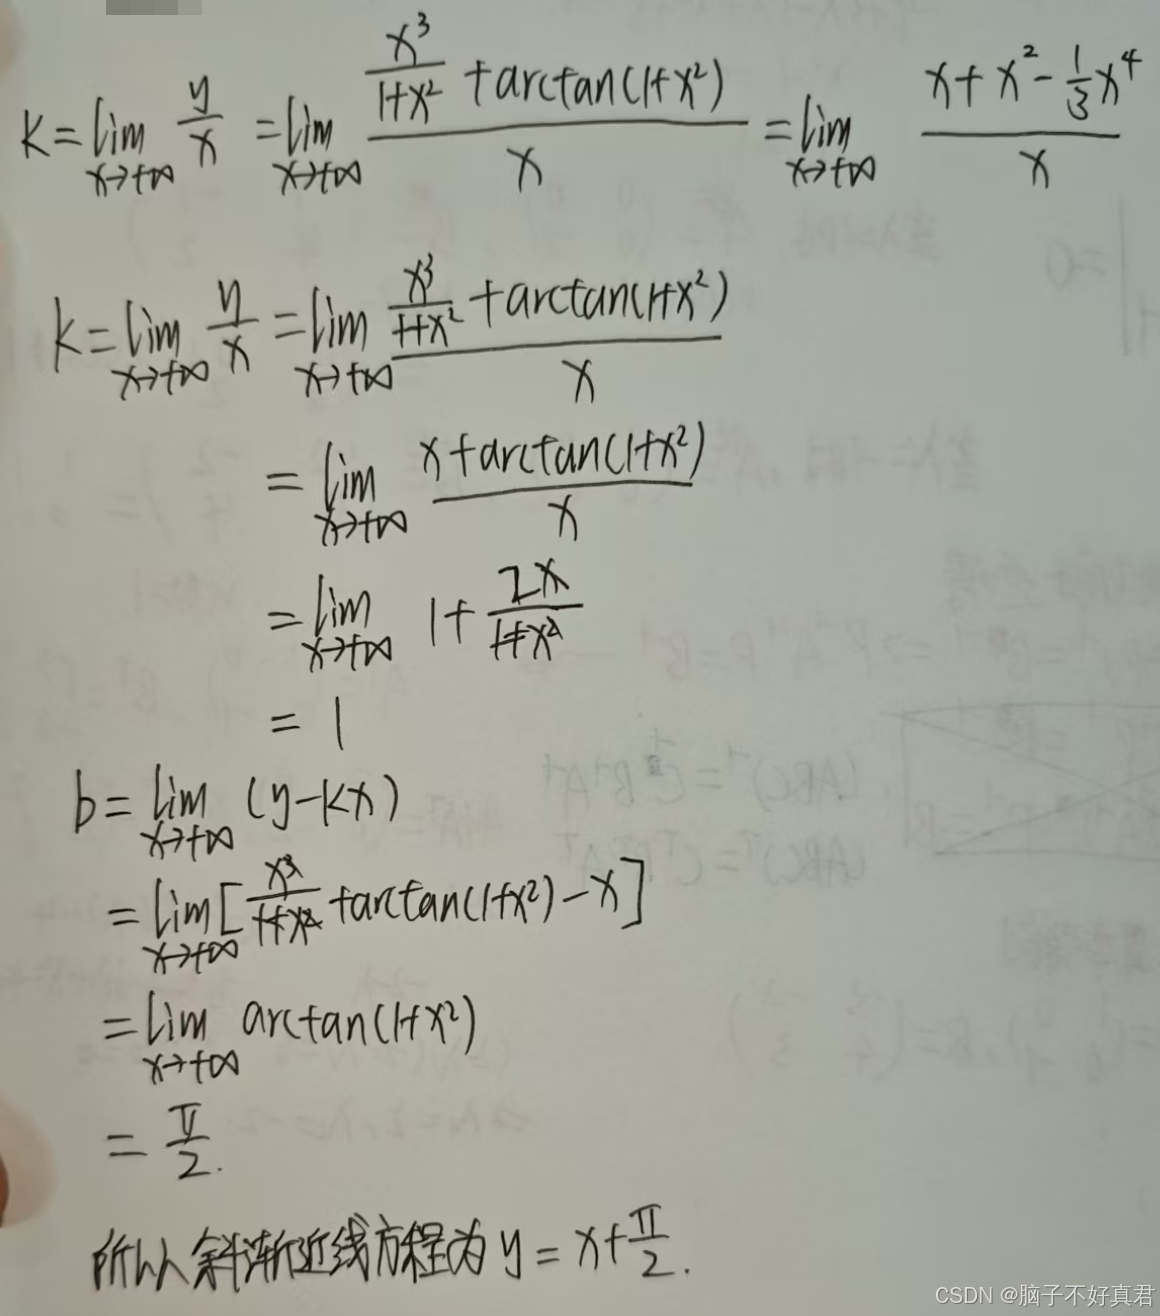 K = lim_{x→+∞} y/x = lim_{x→+∞} (x³/(1+x²) + arctan(1+x²))/x = lim_{x→+∞} (x + x² - 1/3 x⁴)/x
k = lim_{x→+∞} y/x = lim_{x→+∞} (x³/(1+x²) + arctan(1+x²))/x
= lim_{x→+∞} (x + arctan(1+x²))/x
= lim_{x→+∞} 1 + 2x/(1+x²)
= 1
b = lim_{x→+∞} (y-kx)
= lim_{x→+∞} [x³/(1+x²) + arctan(1+x²) - x]
= lim_{x→+∞} arctan(1+x²)
= π/2.
所以斜渐近线方程为 y = x + π/2.
CSDN @脑子不好真君